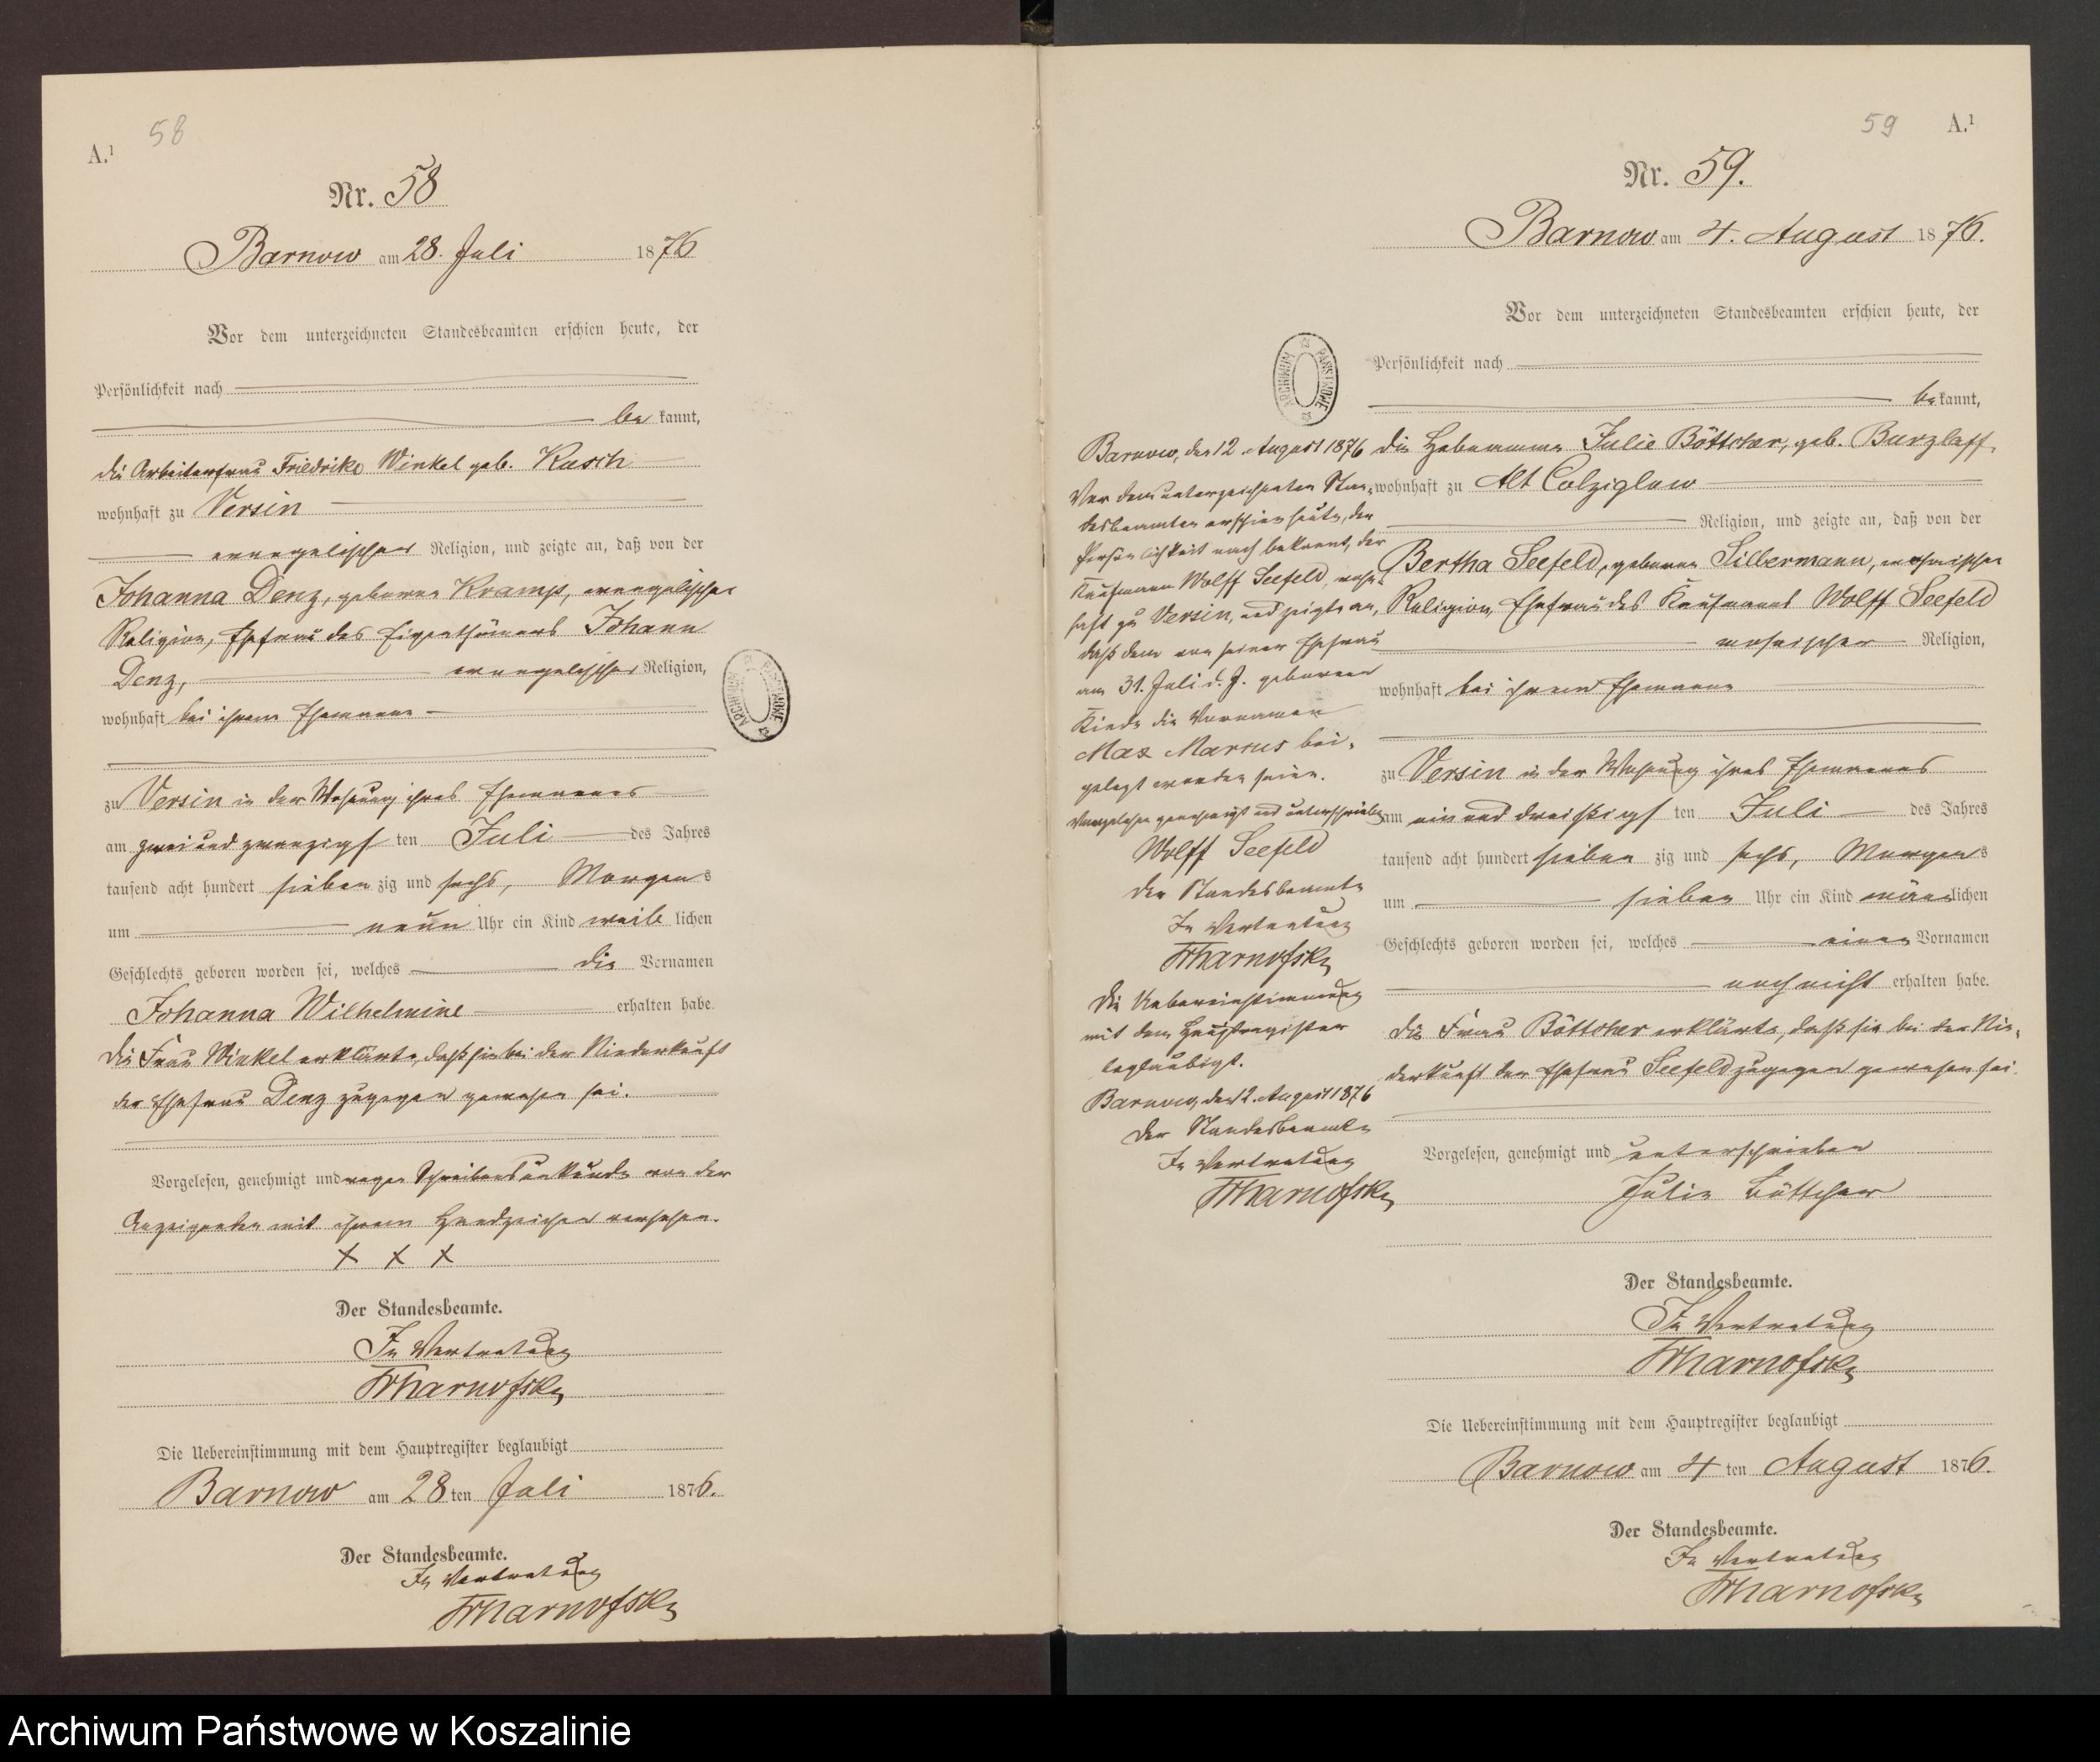 58
A.¹
Nr. 58
Barnow am 28. Juli 1876
Vor dem unterzeichneten Standesbeamten erschien heute, der
Persönlichkeit nach
be kannt,
die Arbeiterfrau Friedrike Winkel geb. Kusch
wohnhaft zu Versin
evangelischer Religion, und zeigte an, daß von der
Johanna Denz, geborene Kramp, evangelischer
Religion, Ehefrau des Eigenthümers Johann
Denz, evangelischer Religion,
wohnhaft bei ihrem Ehemanne
zu Versin in der Wohnung ihres Ehemannes
am zwei und zwanzigs ten Juli des Jahres
tausend acht hundert sieben zig und sechs, Morgens
um neun Uhr ein Kind weib lichen
Geschlechts geboren worden sei, welches die Vornamen
Johanna Wilhelmine erhalten habe.
Die Frau Winkel erklärte, daß sie bei der Niederkunft
der Ehefrau Denz zugegen gewesen sei.
Vorgelesen, genehmigt und wegen Schreibensunkunde von der
Anzeigenden mit ihrem Handzeichen versehen.
x x x
Der Standesbeamte.
In Vertretung
Die Uebereinstimmung mit dem Hauptregister beglaubigt
Barnow am 28 ten Juli 1876.
Der Standesbeamte.
In Vertretung
ARCHIWUM PAŃSTWOWE
59 A.¹
Nr. 59.
Barnow am 4. August 1876.
Vor dem unterzeichneten Standesbeamten erschien heute, der
Persönlichkeit nach
be kannt,
die Hebeamme Julie Böttcher, geb. Burzlaff,
wohnhaft zu Alt Colziglow
Religion, und zeigte an, daß von der
Bertha Seefeld, geborene Silbermann, mosaischer
Religion, Ehefrau des Kaufmanns Wolff Seefeld
mosaischer Religion,
wohnhaft bei ihrem Ehemanne
zu Versin in der Wohnung ihres Ehemannes
am ein und dreißigs ten Juli des Jahres
tausend acht hundert sieben zig und sechs, Morgens
um sieben Uhr ein Kind männlichen
Geschlechts geboren worden sei, welches einen Vornamen
noch nicht erhalten habe.
Die Frau Böttcher erklärte, daß sie bei der Nie-
derkunft der Ehefrau Seefeld zugegen gewesen sei.
Vorgelesen, genehmigt und unterschrieben
Julie Böttcher
Der Standesbeamte.
In Vertretung
Die Uebereinstimmung mit dem Hauptregister beglaubigt
Barnow am 4 ten August 1876.
Der Standesbeamte.
In Vertretung
ARCHIWUM PAŃSTWOWE
Barnow, den 12. August 1876
Vor dem unterzeichneten Stan-
desbeamten erschien heute, der
Persönlichkeit nach bekannt, der
Kaufmann Wolff Seefeld, wohn-
haft zu Versin, und zeigte an,
daß dem von seiner Ehefrau
am 31. Juli d. J. geborenen
Kinde die Vornamen
Max Marcus bei-
gelegt worden seien.
Vorgelesen genehmigt und unterschrieben
Wolff Seefeld
Der Standesbeamte
In Vertretung
Die Uebereinstimmung
mit dem Hauptregister
beglaubigt.
Barnow, den 12. August 1876
Der Standesbeamte
In Vertretung
Archiwum Państwowe w Koszalinie